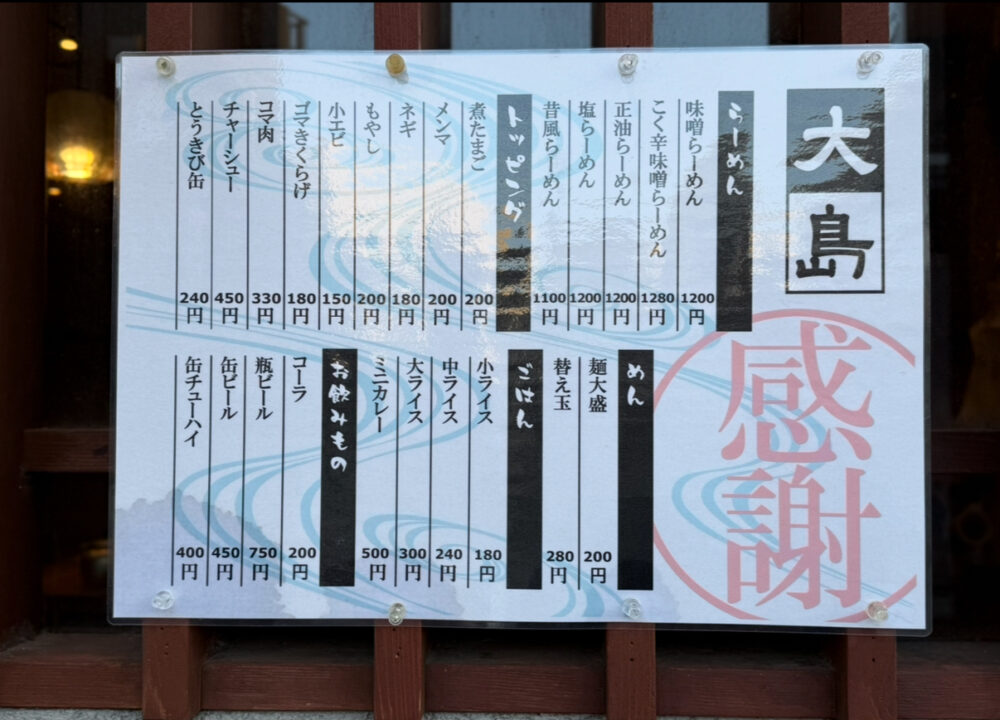 大島
感謝
らーめん
味噌らーめん 1200円
こく辛味噌らーめん 1280円
正油らーめん 1200円
塩らーめん 1200円
昔風らーめん 1100円
トッピング
煮たまご 200円
メンマ 200円
ネギ 180円
もやし 200円
小エビ 150円
ゴマきくらげ 180円
コマ肉 330円
チャーシュー 450円
とうきび缶 240円
めん
麺大盛 200円
替え玉 280円
ごはん
小ライス 180円
中ライス 240円
大ライス 300円
ミニカレー 500円
お飲みもの
コーラ 200円
瓶ビール 750円
缶ビール 450円
缶チューハイ 400円